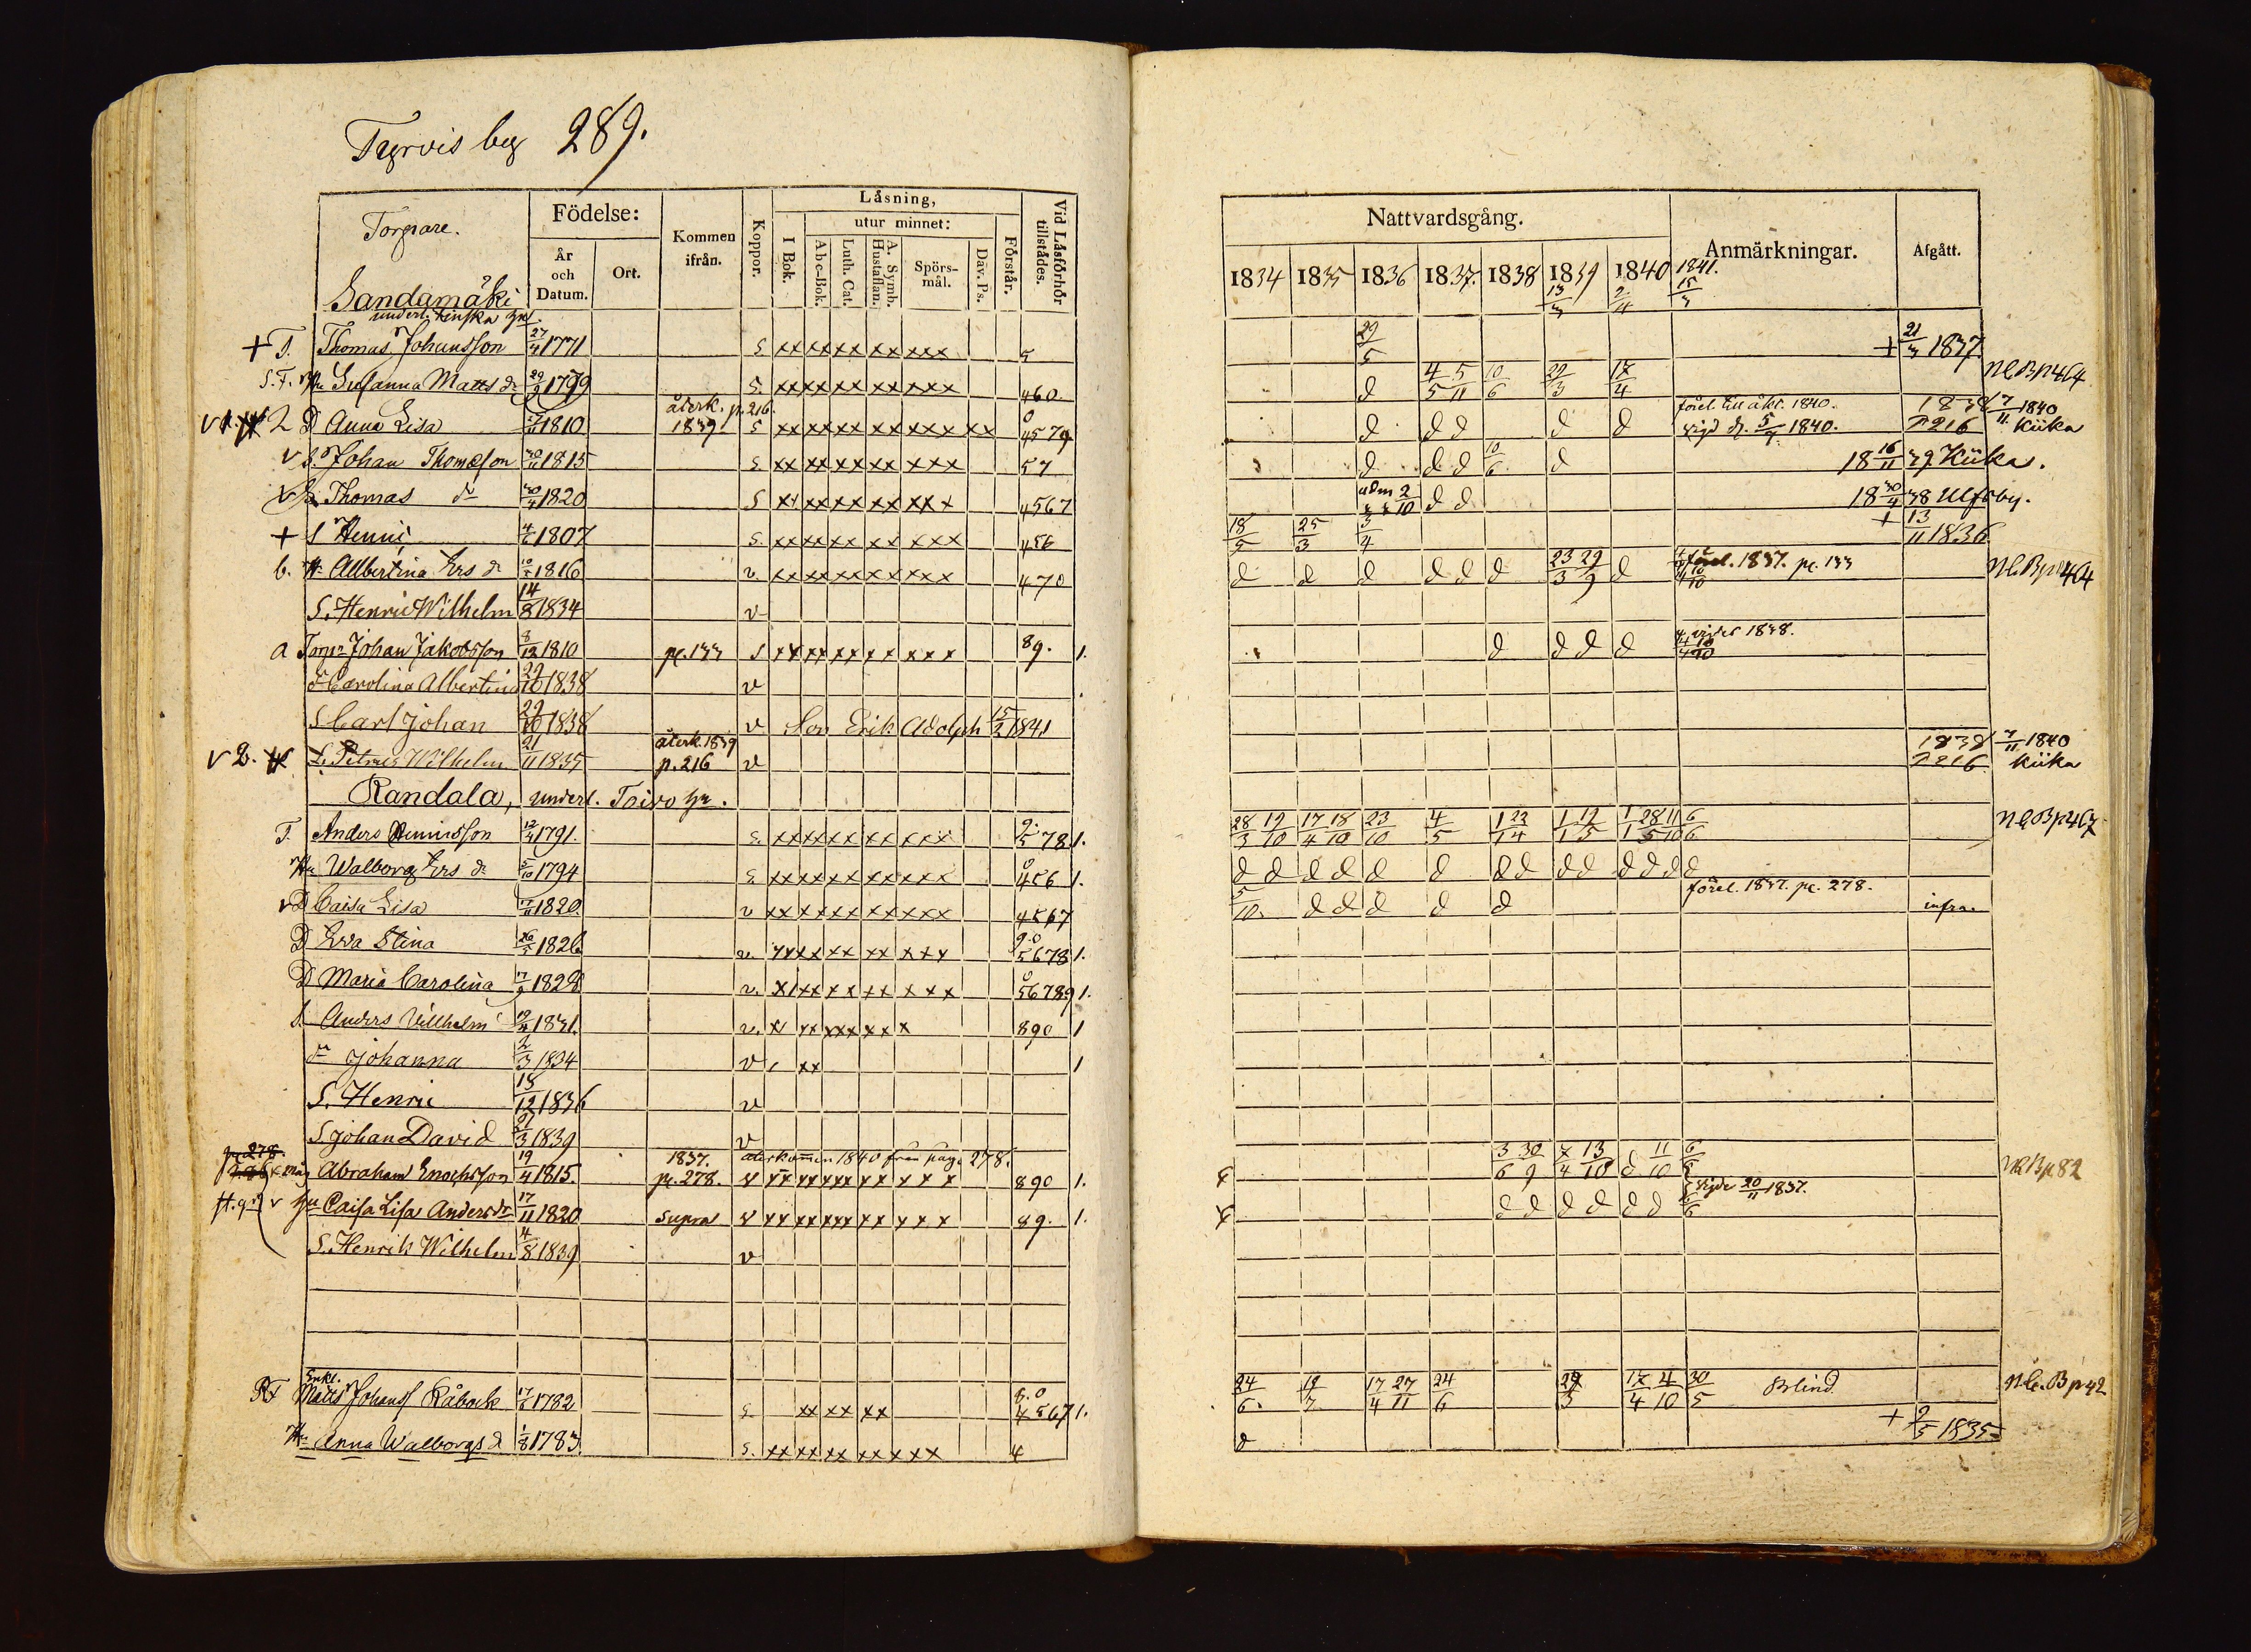 Tyrvis by 289.
Torpare. Födelse: Kommen ifrån. Koppor. Läsning, Vid Läsförhör tillstädes.
År och Datum. Ort. I Bok. utur minnet: Förstår.
Abc-Bok. Luth. Cat. A. Symb. Hustaflan. Spörsmål. Dav. Ps.
Sandamäki
+ T. Thomas Johansson 27/4 1771 S xx xx xx xx xxx 5
S.F. Hu Susanna Matts dr 29/2 1799 S. xx xx xx xx xxx 460
återk. p. 216.
D Anna Lisa 1810 1839 S xx xx xx xx xxx xx 4579
v S. Johan Thomasson 30/11 1815 S xx xx xx xx xxx 57
v S Thomas dr 30/4 1820 S xx xx xx xx xxx 4567
+ S Henric 1807 S. xx xx xx xx xxx 456
b. H. Allbertina Ers dr 1816 v. xx xx xx xx xxx 470
S. Henric Wilhelm 14/8 1834 v
a Torpr Johan Jakobsson 8/12 1810 pg. 133 S xx xx xx xx xxx 89. 1.
dr Carolina Albertina 29/10 1838 v
S Carl Johan 29/10 1838 v Son Erik Adolph 15/2 1841
återk. 1839
v 2. S. Petrus Wilhelm 21/11 1835 p. 216 v
Randala, underl. Toivo hn.
T. Anders Hennicsson 12/4 1791. S. xx xx xx xx xxx 9. 578. 1.
Hu Walborg Ers dr 5/10 1794 S xx xx xx xx xxx 0 456 1.
v D Caisa Lisa 17/11 1820. v xx xx xx xx xxx 4567
D Eva Stina 26/5 1826 v. xx xx xx xx xxx 9.0 5678 1.
D Maria Carolina 17/9 1828 v. x1 xx xx xx xxx 0 56789 1.
S. Anders Villhelm 19/4 1831. v. x1 xx xxx xx x 890 1
dr Johanna 2/3 1834 v 1 xx 1
S. Henric 15/12 1836 v
S Johan David 21/3 1839 v
pg 278. 1837. återkommen 1840 från page 278.
måg Abraham Enochsson 19/4 1815. pg. 278. v xx xx xxx xx xxx 890 1.
v Hu Caisa Lisa Anders dr 17/11 1820 supra v xx xx xxx xx xxx 89. 1.
S. Henrik Wilhelm 4/8 1839 v
Enkl.
Matts Johanss Råbock 1782 S xx xx xx 8.0 4567 1.
Hu Anna Walborgs d 1/8 1783. S. xx xx xx xx xxx 4
Nattvardsgång. Anmärkningar. Afgått.
1834 1835 1836 1837. 1838 1839 1840 1841.
13/3 2/4 15/3
29/5 + 21/3 1837.
d 4/5 5/11 10/6 29/3 17/4 NCBp464
förel. till äkt. 1840. 1838 7/11 1840
d d d d d vigd d. 1840. p 216 Kiika
d d d 10/6 d 18 16/11 39. Kiika.
adm 2/10 d d 18 30/4 38 Ulfsby.
18/5 25/3 3/4 + 13/11 1836
d d d d d d 23/3 29/9 d förel. 1837. pg. 133 NCBp464
d d d d vigdes 1838.
1838 7/11 1840
p 216 Kiika
28/3 19/10 17/4 18/10 23/10 4/5 1/1 22/4 1/1 12/5 1/1 28/5 11/10 6/6 NCBp467
d d d d d d d d d d d d d d
5/10. d d d d d förel. 1837. pg. 278. infra.
3/6 30/9 7/4 13/10 d 11/10 6/6 NCBp82
d d d d d d 6/6 vigde 20/11 1837.
24/6. 19/7 17/4 27/11 24/6 29/3 17/4 4/10 30/5 Blind NC.Bp42
d + 2/5 1835